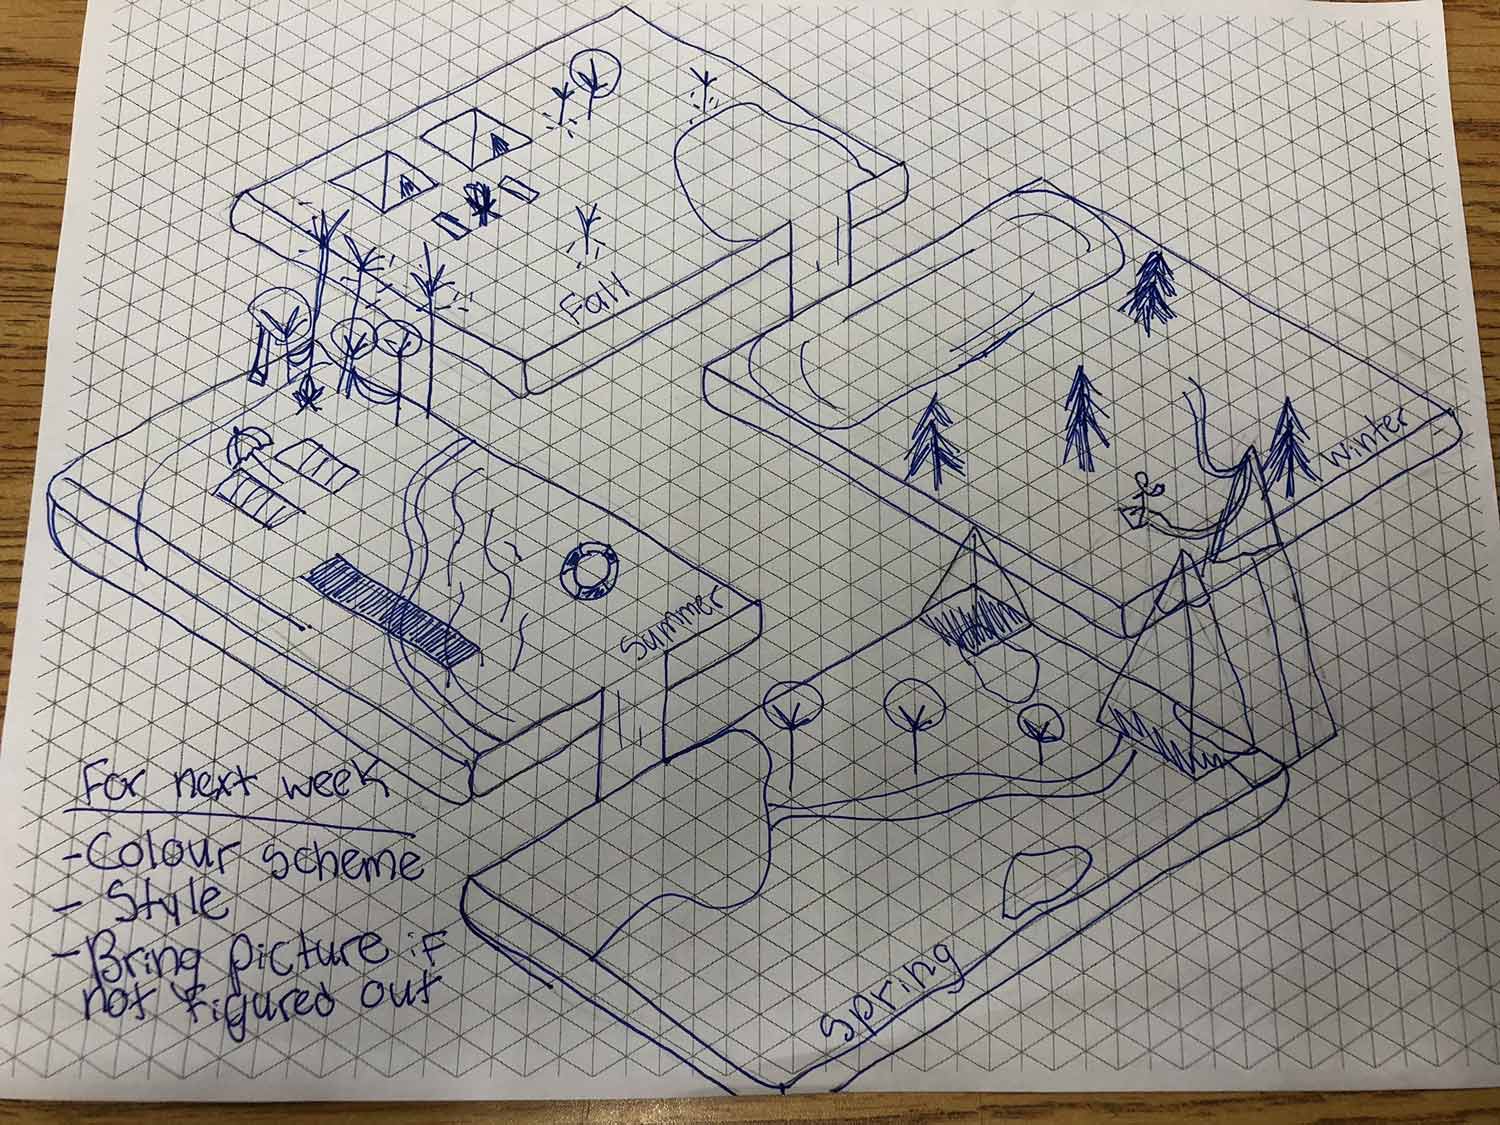 Fall
Winter
Summer
For next week
- Colour scheme
- Style
- Bring picture if
not figured out
Spring